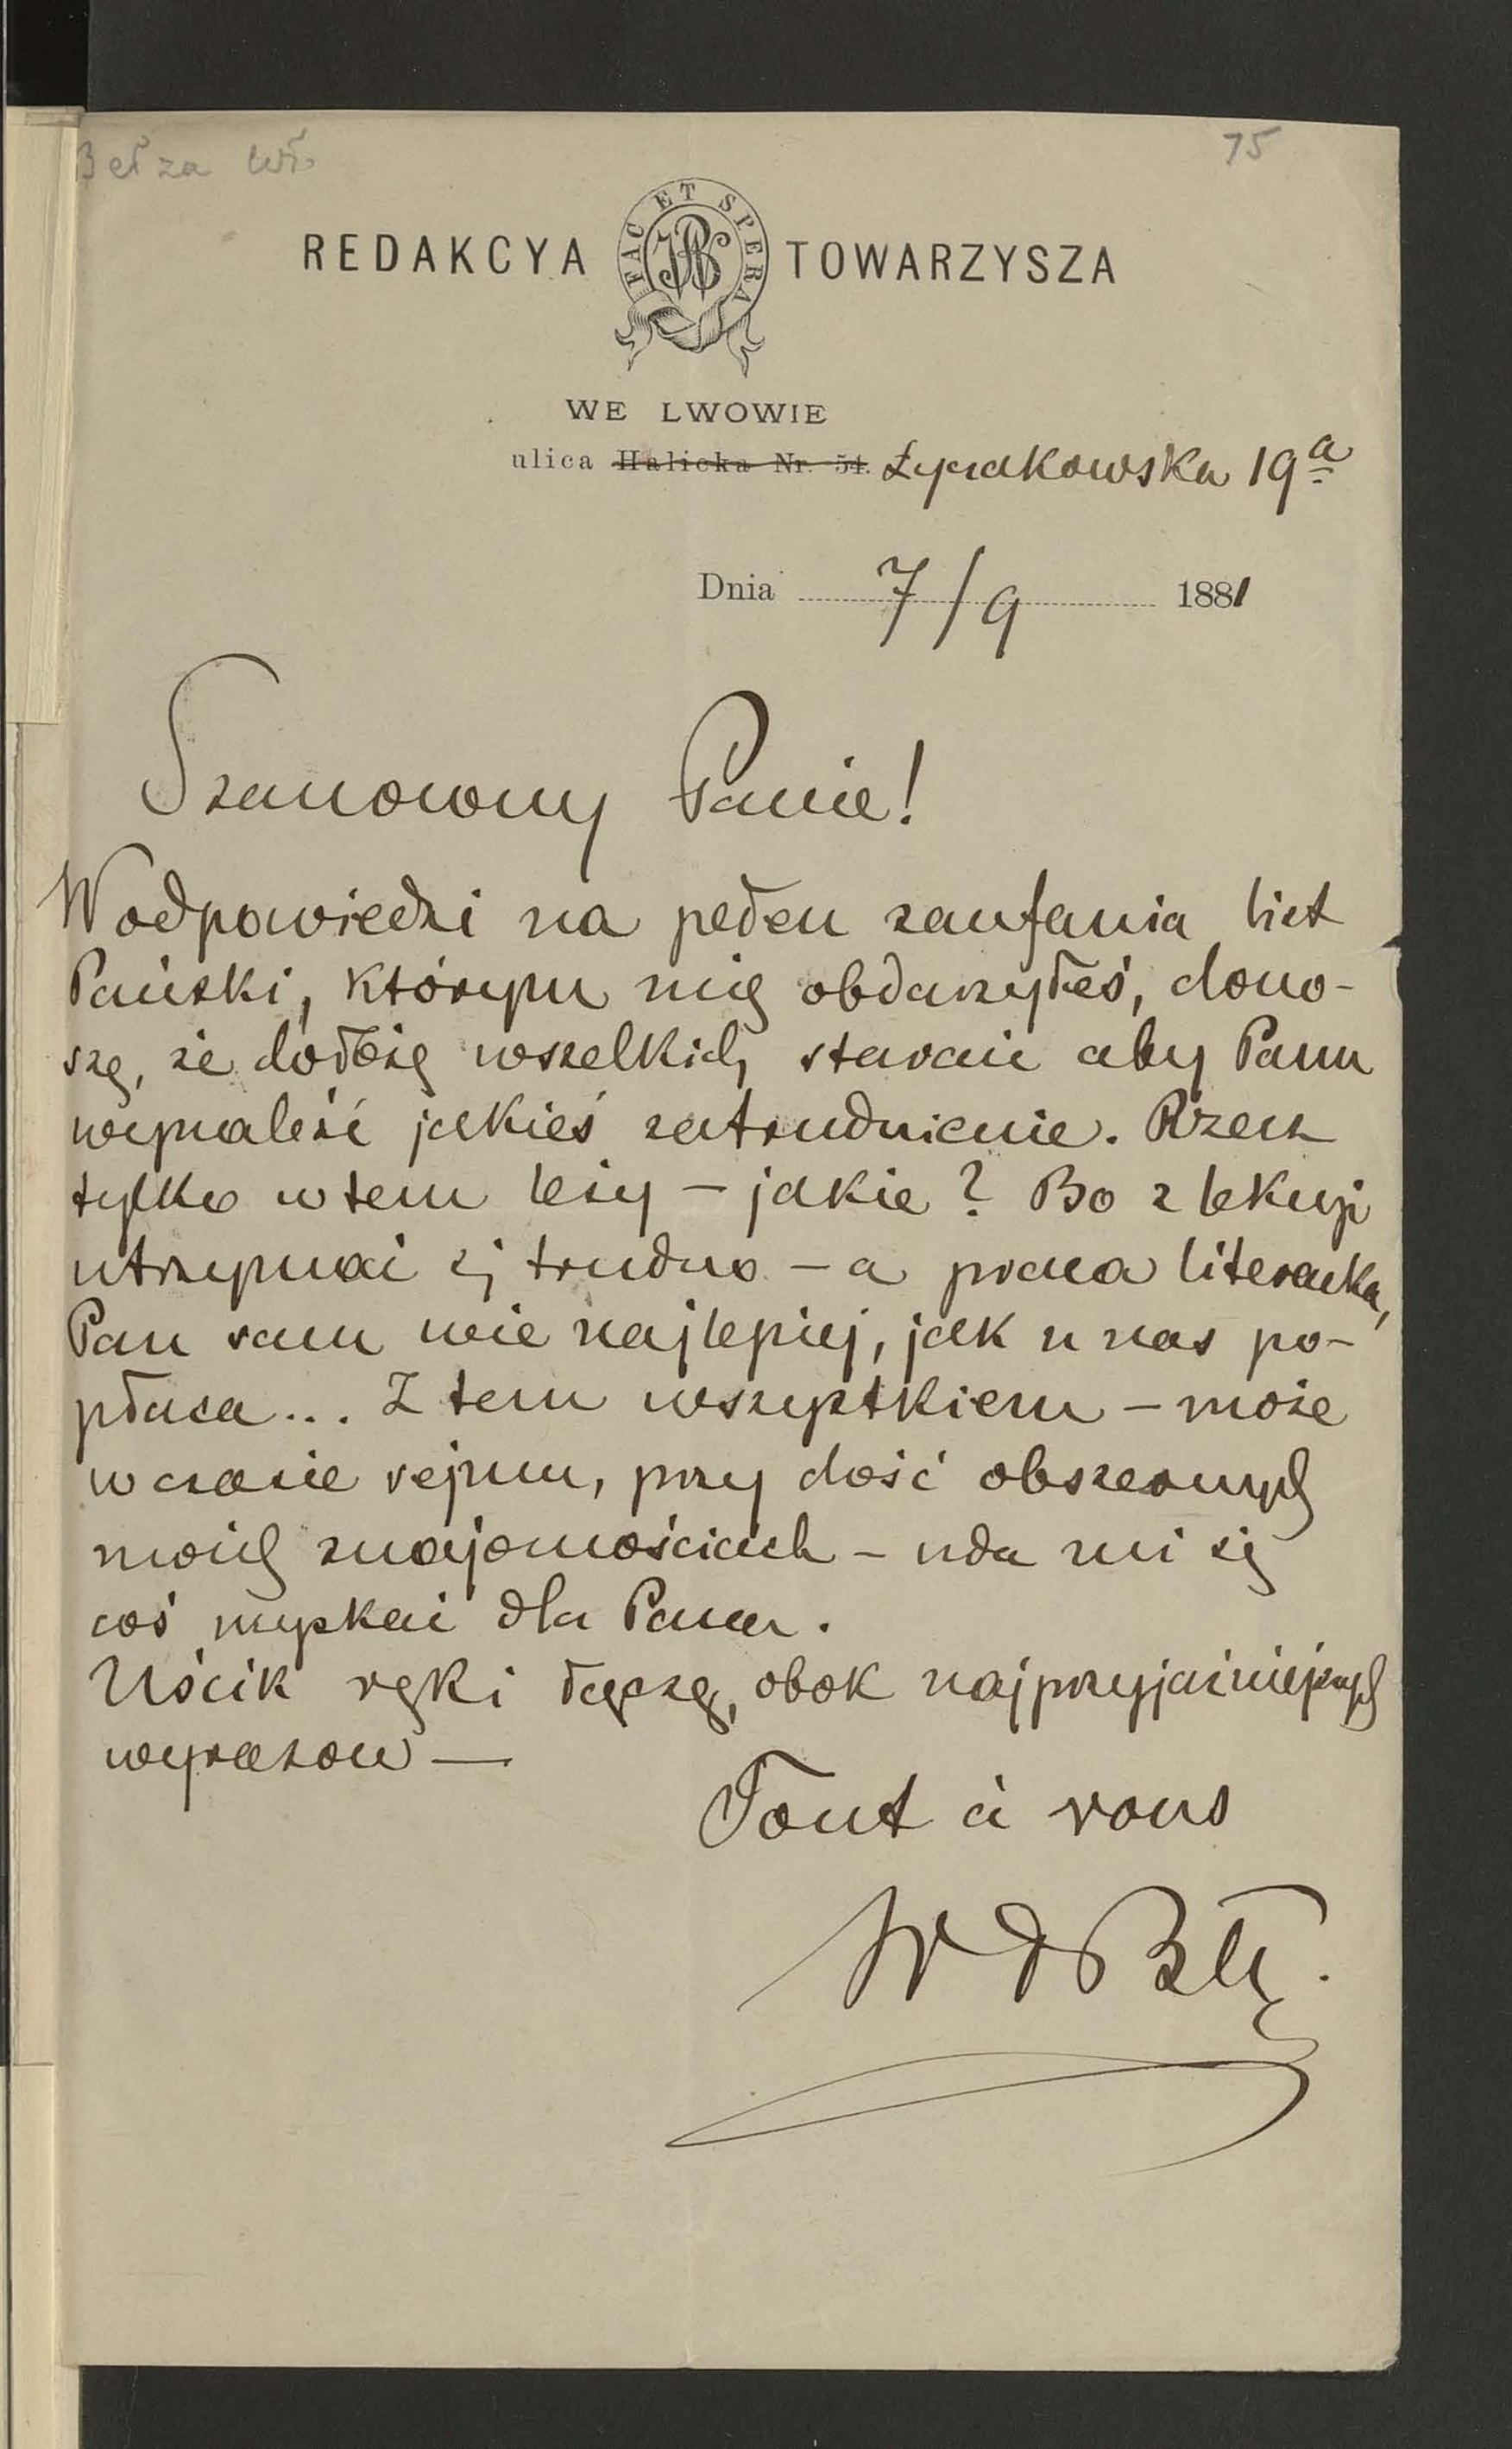 Bełza Wł.
75
REDAKCYA TOWARZYSZA
FAC ET SPERA
WE LWOWIE
ulica Halicka Nr. 54. Łyczakowska 19a
Dnia 7/9 1881
Szanowny Panie!
W odpowiedzi na pełen zaufania list
Pański, którym mię obdarzyłeś, dono-
szę, że dołożę wszelkich starań aby Panu
wynaleść jakieś zatrudnienie. Rzecz
tylko w tem leży – jakie? Bo z lekcyi
utrzymać się trudno – a praca literacka,
Pan sam wie najlepiej, jak u nas po-
płaca... Z tem wszystkiem – może
w czasie sejmu, przy dość obszernych
moich znajomościach – uda mi się
coś uzyskać dla Pana.
Uścik ręki łączę, obok najprzyjaźniejszych
wyrazow —
Tout à vous